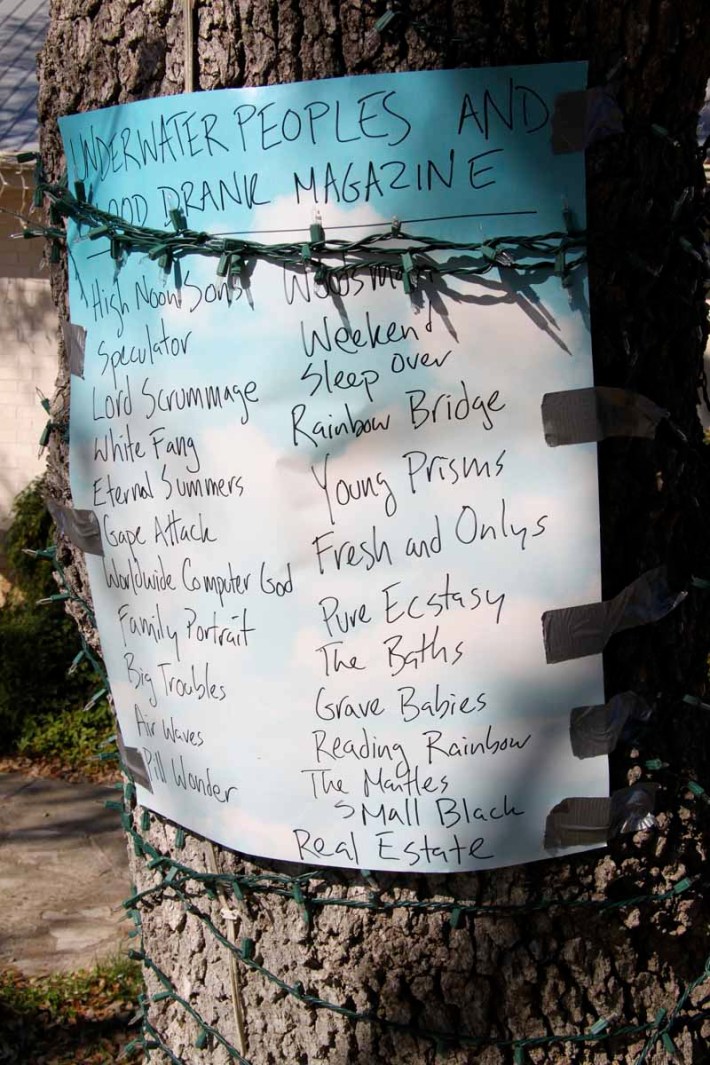 UNDERWATER PEOPLES AND
DRANK MAGAZINE
High Noon Sons
Speculator
Lord Scrummage
White Fang
Eternal Summers
Gape Attack
Worldwide Computer God
Family Portrait
Big Troubles
Air Waves
Pill Wonder
Weekend
Sleep over
Rainbow Bridge
Young Prisms
Fresh and Onlys
Pure Ecstasy
The Baths
Grave Babies
Reading Rainbow
The Mantles
Small Black
Real Estate